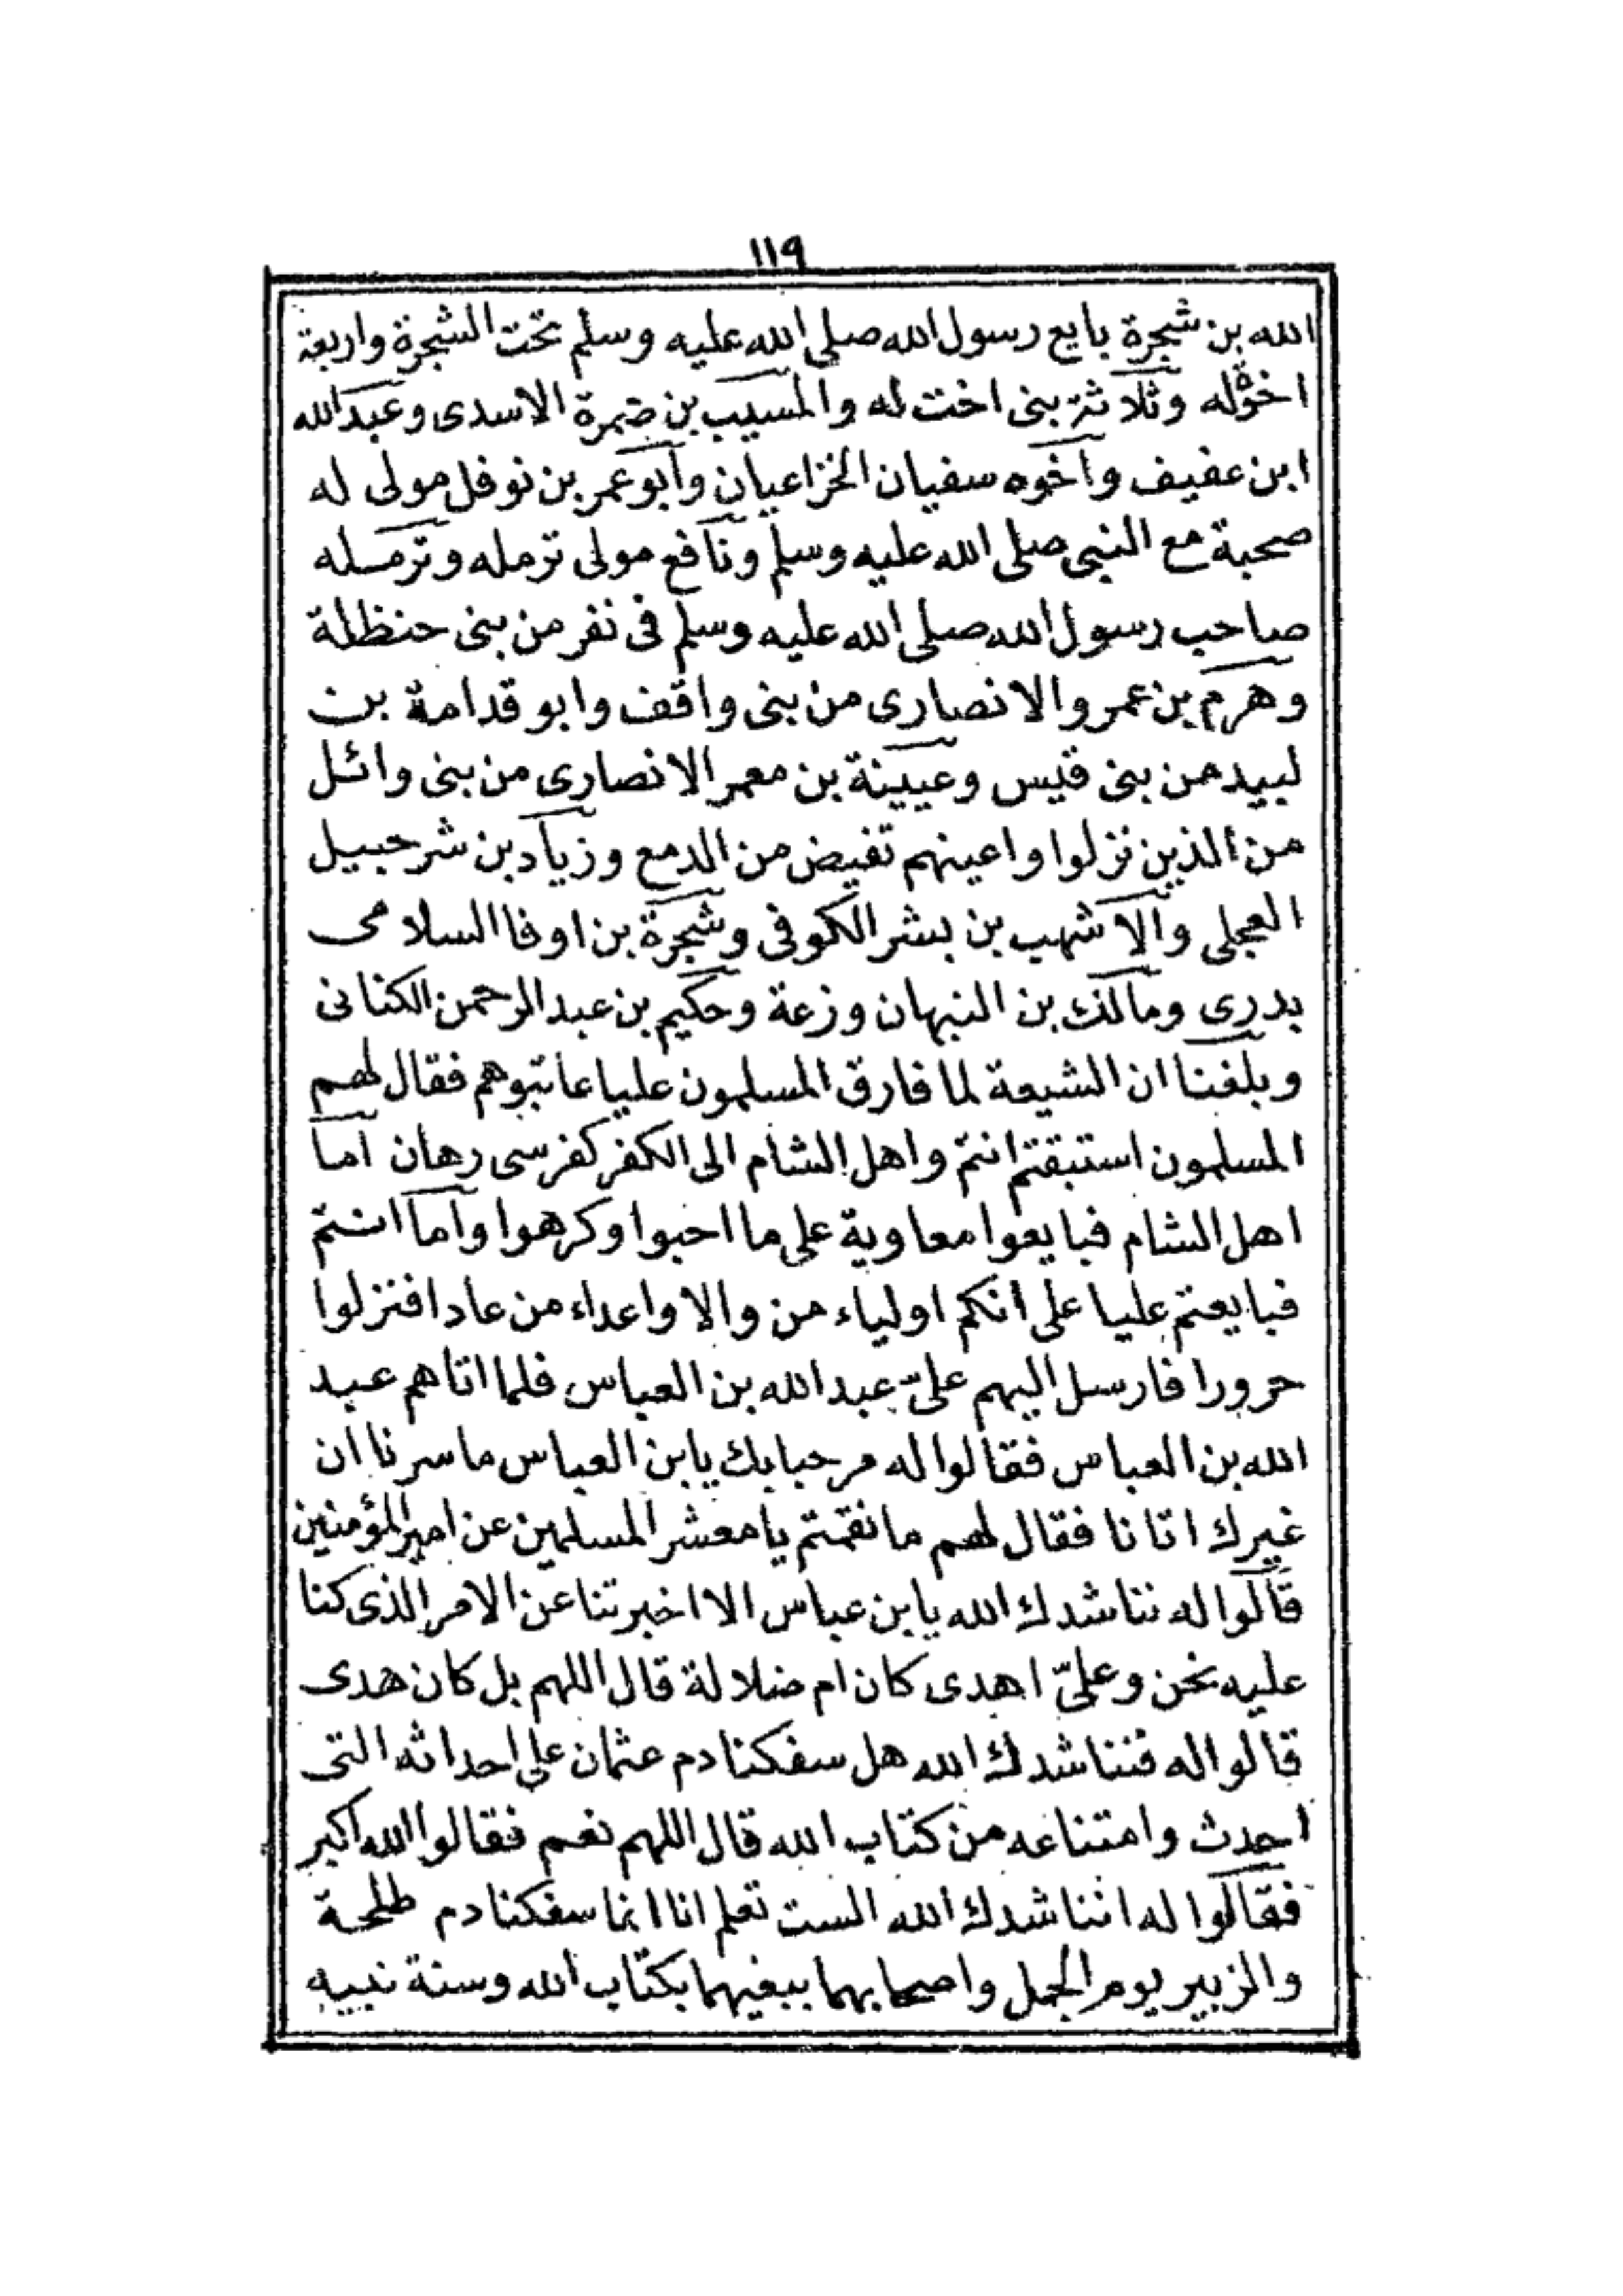 ١١٩
الله بن شجرة بايع رسول الله صلى الله عليه وسلم تحت الشجرة واربعة
اخوة له وثلاثة بنى اخت له والمسيب بن ضمرة الاسدى وعبد الله
ابن عفيف واخوه سفيان الخزاعيان وابو عمر بن نوفل مولى له
صحبة مع النبى صلى الله عليه وسلم ونافع مولى ترمله وترمله
صاحب رسول الله صلى الله عليه وسلم فى نفر من بنى حنظلة
وهرم بن عمر والانصارى من بنى واقف وابو قدامة بن
لبيد من بنى قيس وعيينة بن معمر الانصارى من بنى وائل
من الذين نزلوا واعينهم تفيض من الدمع وزياد بن شرحبيل
العجلى والاشهب بن بشر الكوفى وشجرة بن اوفا السلامى
بدرى ومالك بن النبهان وزعة وحكيم بن عبد الرحمن الكنانى
وبلغنا ان الشيعة لما فارق المسلمون عليا عاتبوهم فقال لهم
المسلمون استبقتم انتم واهل الشام الى الكفر كفرسى رهان اما
اهل الشام فبايعوا معاوية على ما احبوا وكرهوا واما انتم
فبايعتم عليا على انكم اولياء من والا واعداء من عادا فنزلوا
حرورا فارسل اليهم علىّ عبد الله بن العباس فلما اتاهم عبد
الله بن العباس فقالوا له مرحبا بك يابن العباس ما سرنا ان
غيرك اتانا فقال لهم ما نقمتم يا معشر المسلمين عن امير المؤمنين
قالوا له نناشدك الله يابن عباس الا اخبرتنا عن الامر الذى كنا
عليه نحن وعلىّ اهدى كان ام ضلالة قال اللهم بل كان هدى
قالوا له فنناشدك الله هل سفكنا دم عثمان على احداثه التى
احدث وامتناعه من كتاب الله قال اللهم نعم فقالوا الله اكبر
فقالوا له اننا شدك الله الست تعلم انا انما سفكنا دم طلحة
والزبير يوم الجمل واصحابهما ببغيهما بكتاب الله وسنة نبيه